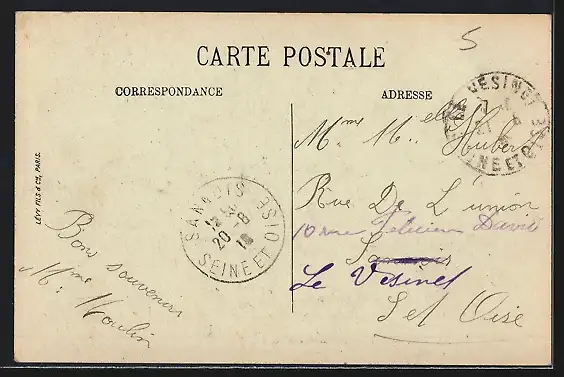 CARTE POSTALE
CORRESPONDANCE
ADRESSE
5
LÉVY FILS & Cie, PARIS.
Bons souvenirs
Mme Moulin
SANNOIS
20 -8
SEINE ET OISE
VESINET
SEINE ET OISE
Mme M. elle Hubert
Rue De L'union
10 rue Félicien David
Sannois
Le Vesinet
S et Oise